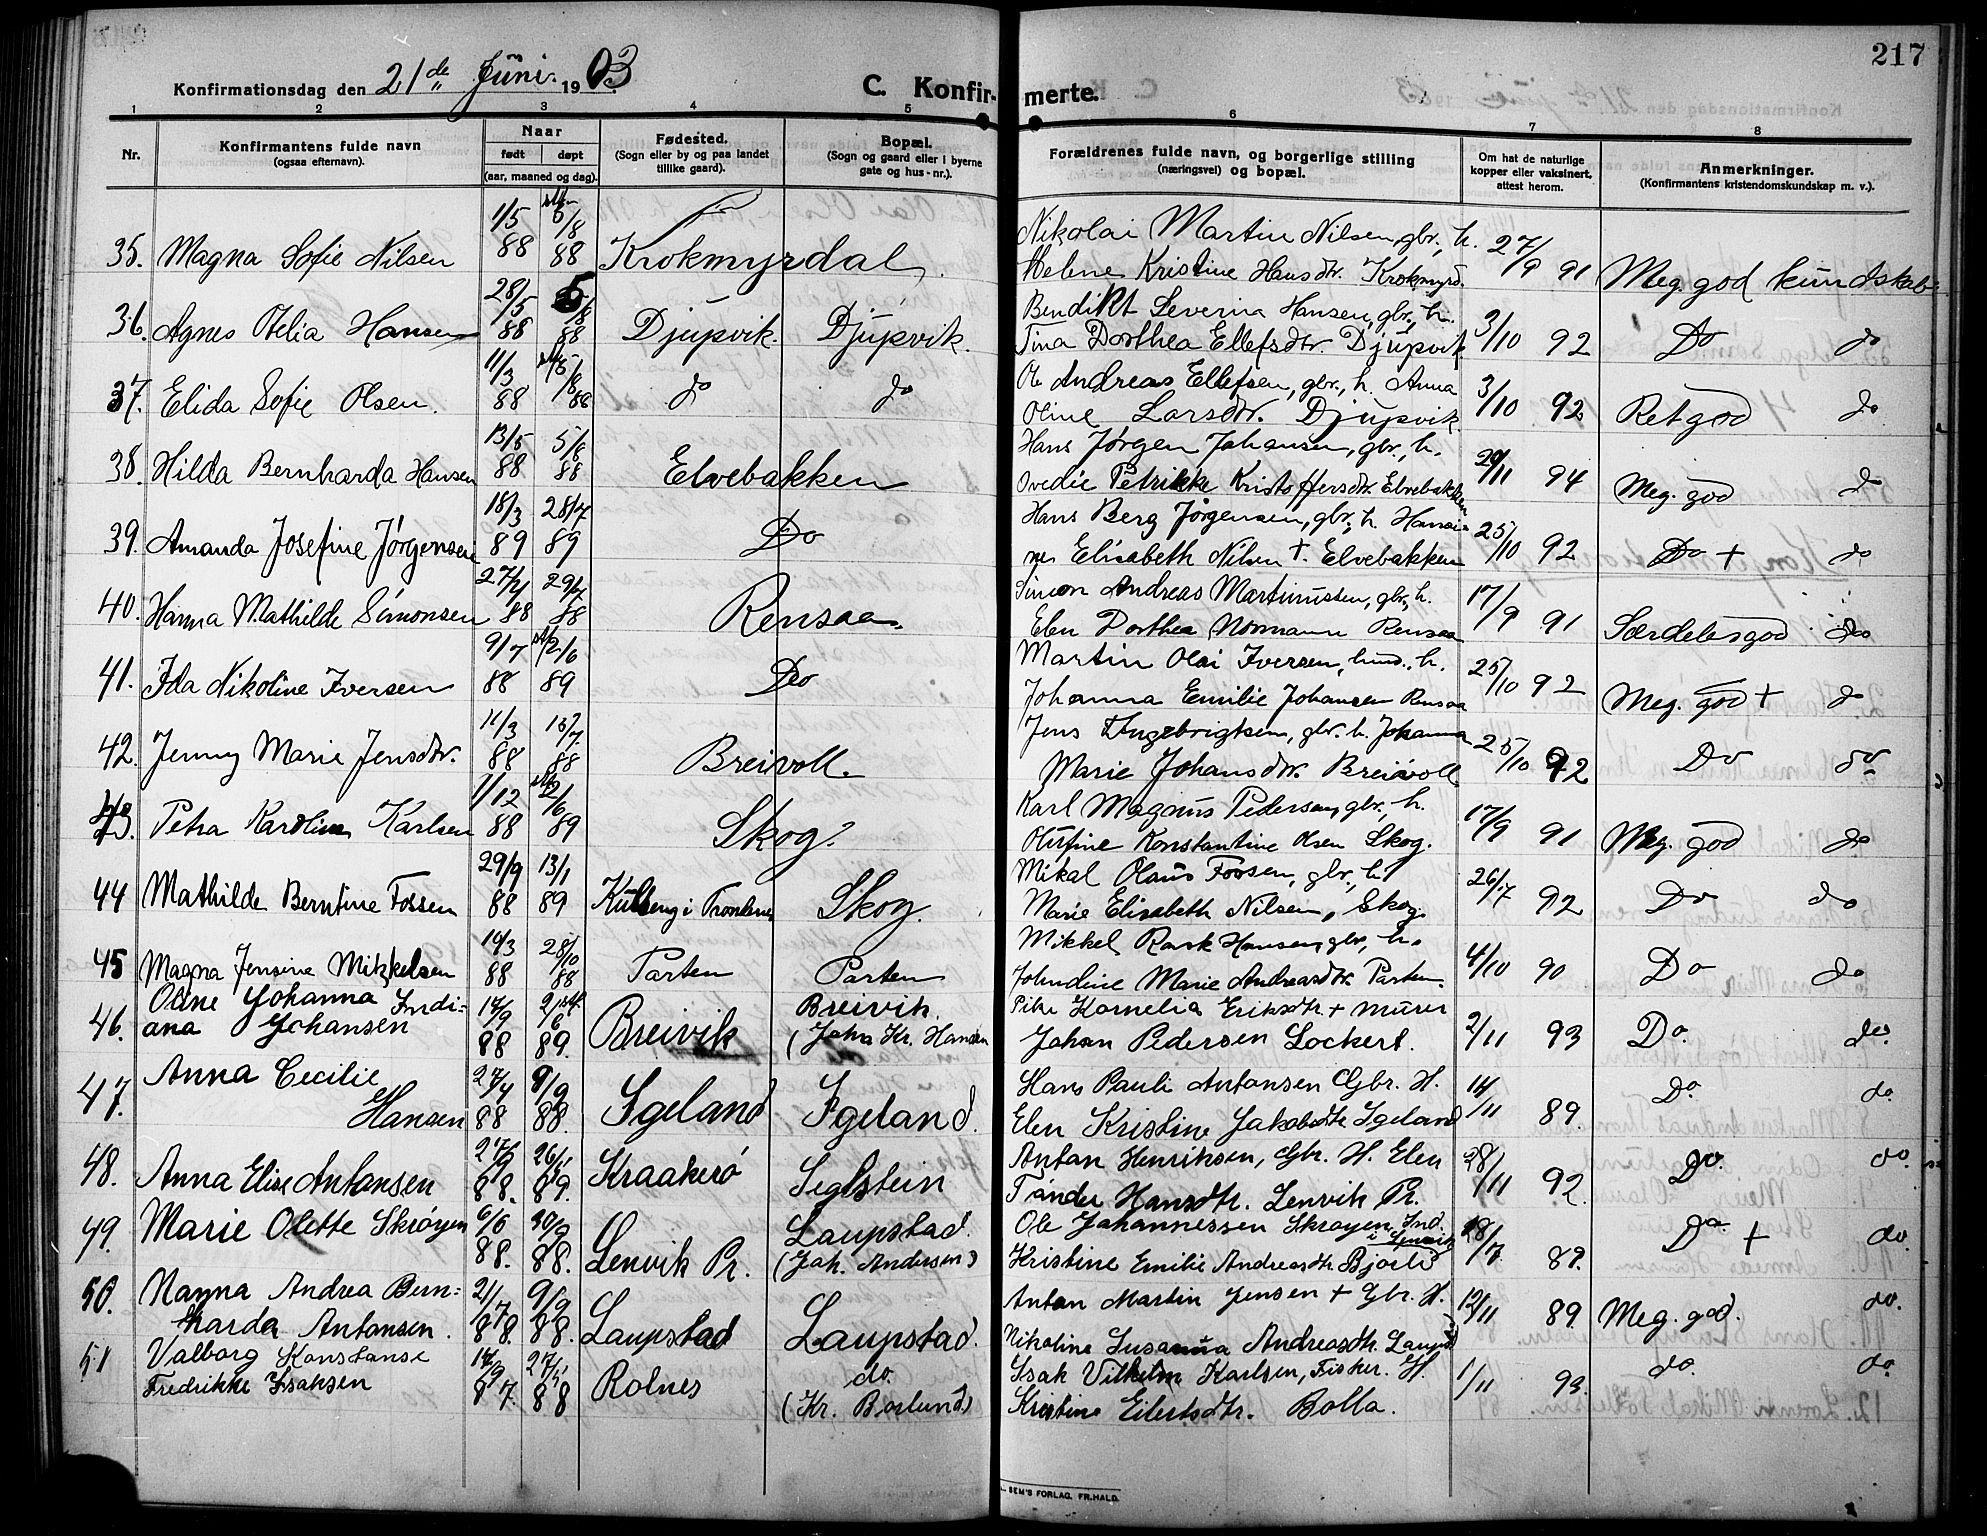 217
Konfirmationsdag den 21de Juni 1903.
C. Konfirmerte.
1 2 3 4 5 6 7 8
Nr.
Konfirmantens fulde navn
(ogsaa efternavn).
Naar
født døpt
(aar, maaned og dag).
Fødested.
(Sogn eller by og paa landet
tillike gaard).
Bopæl.
(Sogn og gaard eller i byerne
gate og hus-nr.).
Forældrenes fulde navn, og borgerlige stilling
(næringsvei) og bopæl.
Om hat de naturlige
kopper eller vaksinert,
attest herom.
Anmerkninger.
(Konfirmantens kristendomskundskap m. v.).
1/5 5/8 Nikolai Martin Nilsen, gbr., h. 27/9
35. Magna Sofie Nilsen 88 88 Krokmyrdal. Helene Kristine Hansdtr. Krokmyrd. 91 Meg. god kundskab
28/5 5/8 Bendikt Severin Hansen, gbr., h. 3/10
36. Agnes Otelia Hansen 88 88 Djupvik. Djupvik. Tina Dorthea Ellefsdtr. Djupvik 92 Do do
11/3 5/8 Ole Andreas Ellefsen, gbr., h. Anna 3/10
37. Elida Sofie Olsen. 88 88 do do Oline Larsdtr. Djupvik 92 Ret god do
13/5 5/8 Hans Jørgen Johansen, gbr., h. 29/11
38. Hilda Bernharda Hansen 88 88 Elvebakken Ovedie Petrikke Kristoffersdtr. Elvebakken 94 Meg. god do
18/3 28/7 Hans Berg Jørgensen, gbr., h. Hansi- 25/10
39. Amanda Josefine Jørgensen 89 89 Do ne Elisabeth Nilsen + Elvebakken 92 Do + do
27/4 29/7 Simon Andreas Martinussen, gbr., h. 17/9
40. Hanna Mathilde Simonsen 88 88 Rensaa. Elen Dorthea Normann Rensaa 91 Særdeles god do
9/7 2/6 Martin Olai Iversen, h. 25/10
41. Ida Nikoline Iversen 88 89 Do Johanna Emilie Johansen Rensaa 92 Meg. god + do
11/3 15/7 Jens Ingebrigtsen, gbr. h. Johanna 25/10
42. Jenny Marie Jensdtr. 88 88 Breivoll. Marie Johansdtr. Breivoll 92 Do do
1/12 2/6 Karl Magnus Pedersen, gbr., h. 17/9
43. Petra Karoline Karlsen 88 89 Skog. Olufine Konstantine Olsen Skog. 91 Meg. god do
29/9 13/1 Mikal Olaus Fossen, gbr., h. 26/7
44 Mathilde Berntine Fossen 88 89 i Trondenes Skog. Marie Elisabeth Nilsen, Skog. 92 Do do
10/3 28/10 Mikkel Rask Hansen, gbr., h. 4/10
45 Magna Jensine Mikkelsen 88 88 Parten Parten Johndine Marie Andreasdtr. Parten. 90 Do do
46. Oline Johanna Indi- 14/9 2/6 Breivik. Kornelia Eriksdtr + murer 2/11
ana Johansen 88 89. Breivik (Johs Kr. Hansen Johan Pedersen Lockert. 93 Do. do.
47. Anna Cecilie 27/4 9/9 Hans Pauli Antonsen Gbr. H. 14/11
Hansen 88 88. Igeland Igeland. Elen Kristine Jakobsdtr Igeland 89. Do. do.
48. 26/1 Antan Henriksen, Gbr. H. Elen 28/11
Anna Elise Antonsen 88. 89. Kraakerø Seglstein Hansdtr. Lenvik Pr. 92. Do. do.
49. Marie Olette Skrøyen 6/6 30/9 Laupstad. Ole Johannessen Skrøyen, Ind. i Lenvik 28/7
88. 88. Lenvik Pr. (Joh. Andersen) Kristine Emilie Andreasdtr Bjorli 89. Do + do.
50. Nanna Andrea Bern- 21/7 9/9 Antan Martin Jensen + Gbr. H. 12/11
harda Antansen. 88. 88. Laupstad Laupstad. Nikoline Susanna Andreasdtr Laupst 89 Meg. god. do.
51 Valborg Konstanse 27/1 do. Isak Vilhelm Karlsen, Fisker. H. 1/11
Fredrikke Isaksen 87. 88 Rolnes (Kr. Borlund) Kristine Eilertsdtr. Bolla. 93. do. do.
SEM'S FORLAG. FR.HALD.